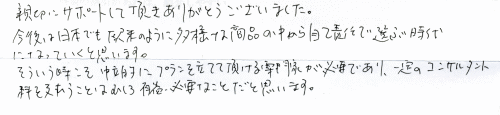 親切にサポートして頂きありがとうございました。
今後は日本でも欧米のように多様な商品の中から自己責任で選ぶ時代
になっていくと思います。
そういう時こそ中立的にプランを立てて頂ける専門家が必要であり、一定のコンサルタント
料を支払うことはむしろ有益、必要なことだと思います。